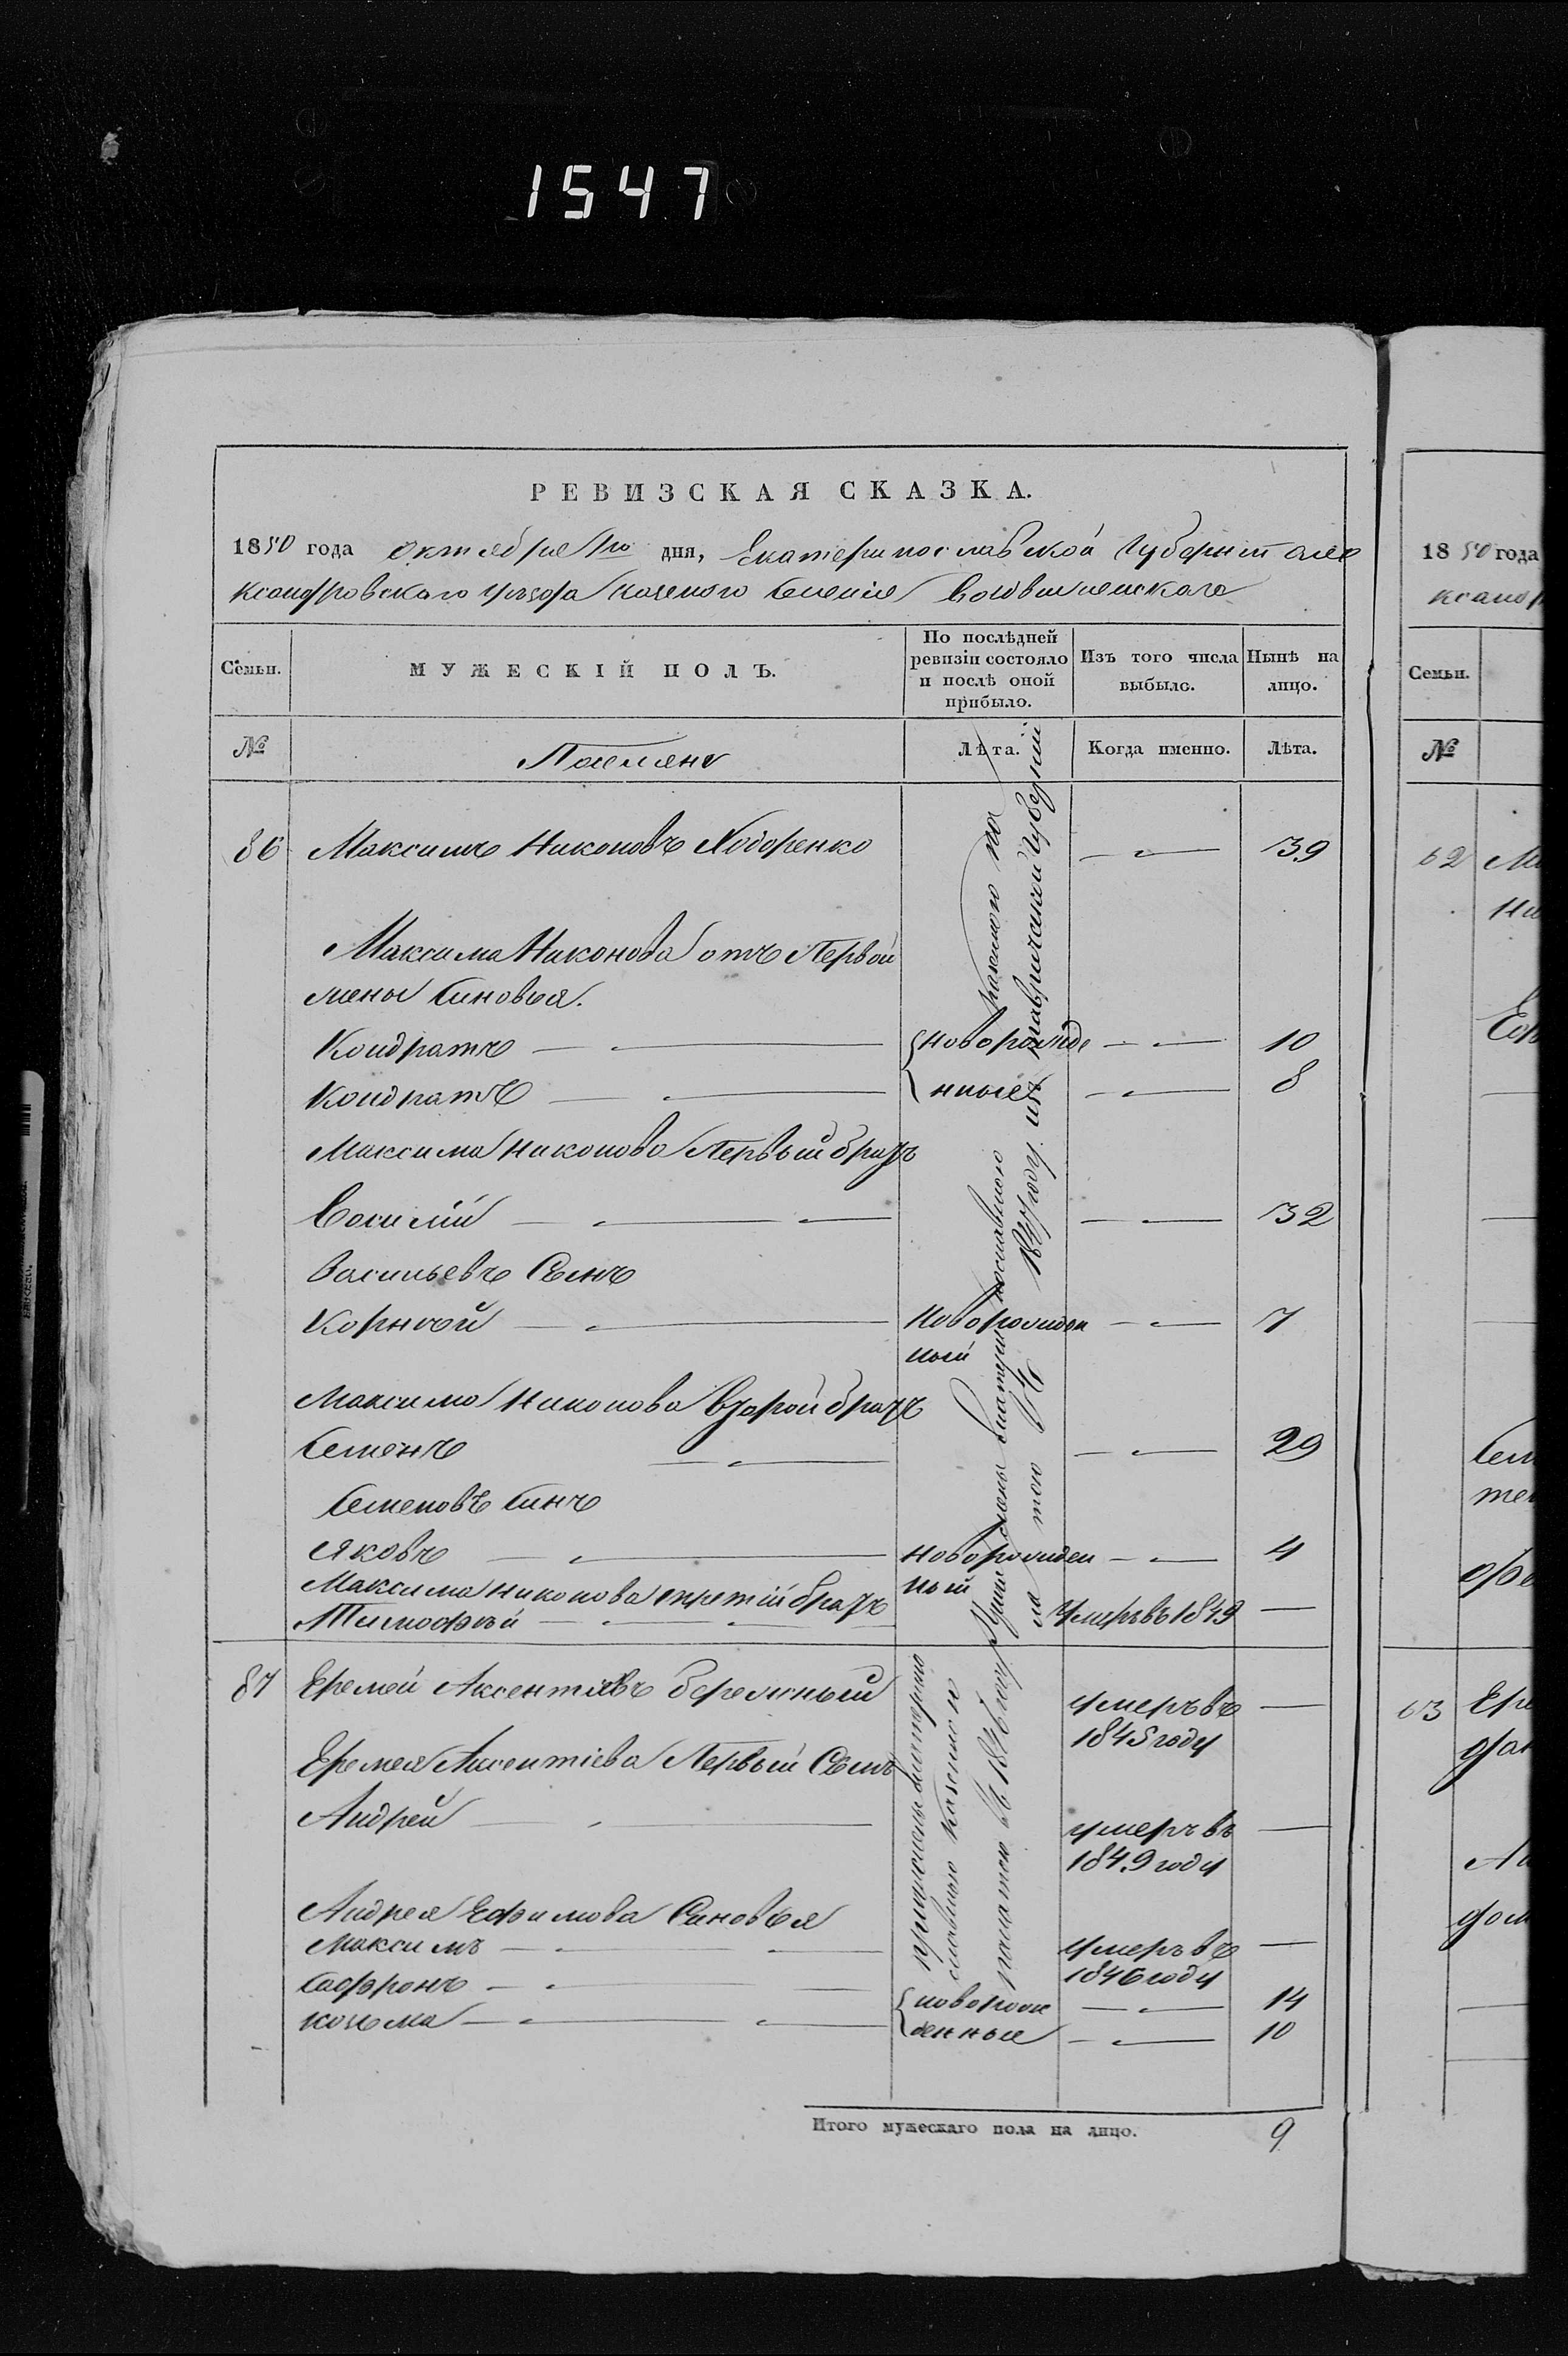 1547
РЕВИЗСКАЯ СКАЗКА.
1850 года октября 1го дня, Екатеринославской Губерніи Але
ксандровскаго уѣзда казеного Селенія Воздвиженскаго
Семьи.
МУЖЕСКІЙ ПОЛЪ.
По послѣдней
ревизіи состояло
и послѣ оной
прибыло.
Изъ того числа
выбыло.
Нынѣ на
лицо.
№
Поселяне
Лѣта.
Когда именно.
Лѣта.
86 Максимъ Никоновъ Ходоренко 39
Максима Никонова отъ Первой
жены Синовья.
Кондратъ новорожде 10
Кондратъ нные 8
Максима Никонова Первый братъ
Василій 32
Васильевъ Сынъ
Корнѣй Новорожден 7
ный
Максима Никонова Второй братъ
Семенъ 29
Семеновъ Синъ
Яковъ новорожден 4
ный
Максима Никонова третій братъ
Тимофѣй Умеръ въ 1849
1844 году изъ Таврической Губерніи
87 Еремей Аксентіевъ Бережный умеръ въ
1845 году
Еремея Аксентіева Первый Сынъ
Андрей умеръ въ
1849 году
Андрея Ефимова Синовья
Максимъ умеръ въ
1846 году
Сафронъ новорож 14
козьма денные 10
причислены Екатерино
славскою казенною
палатою въ 1846 году
Итого мужескаго пола на лицо. 9
18 50 года
ксанд
Семьи.
№
62
63 Ере